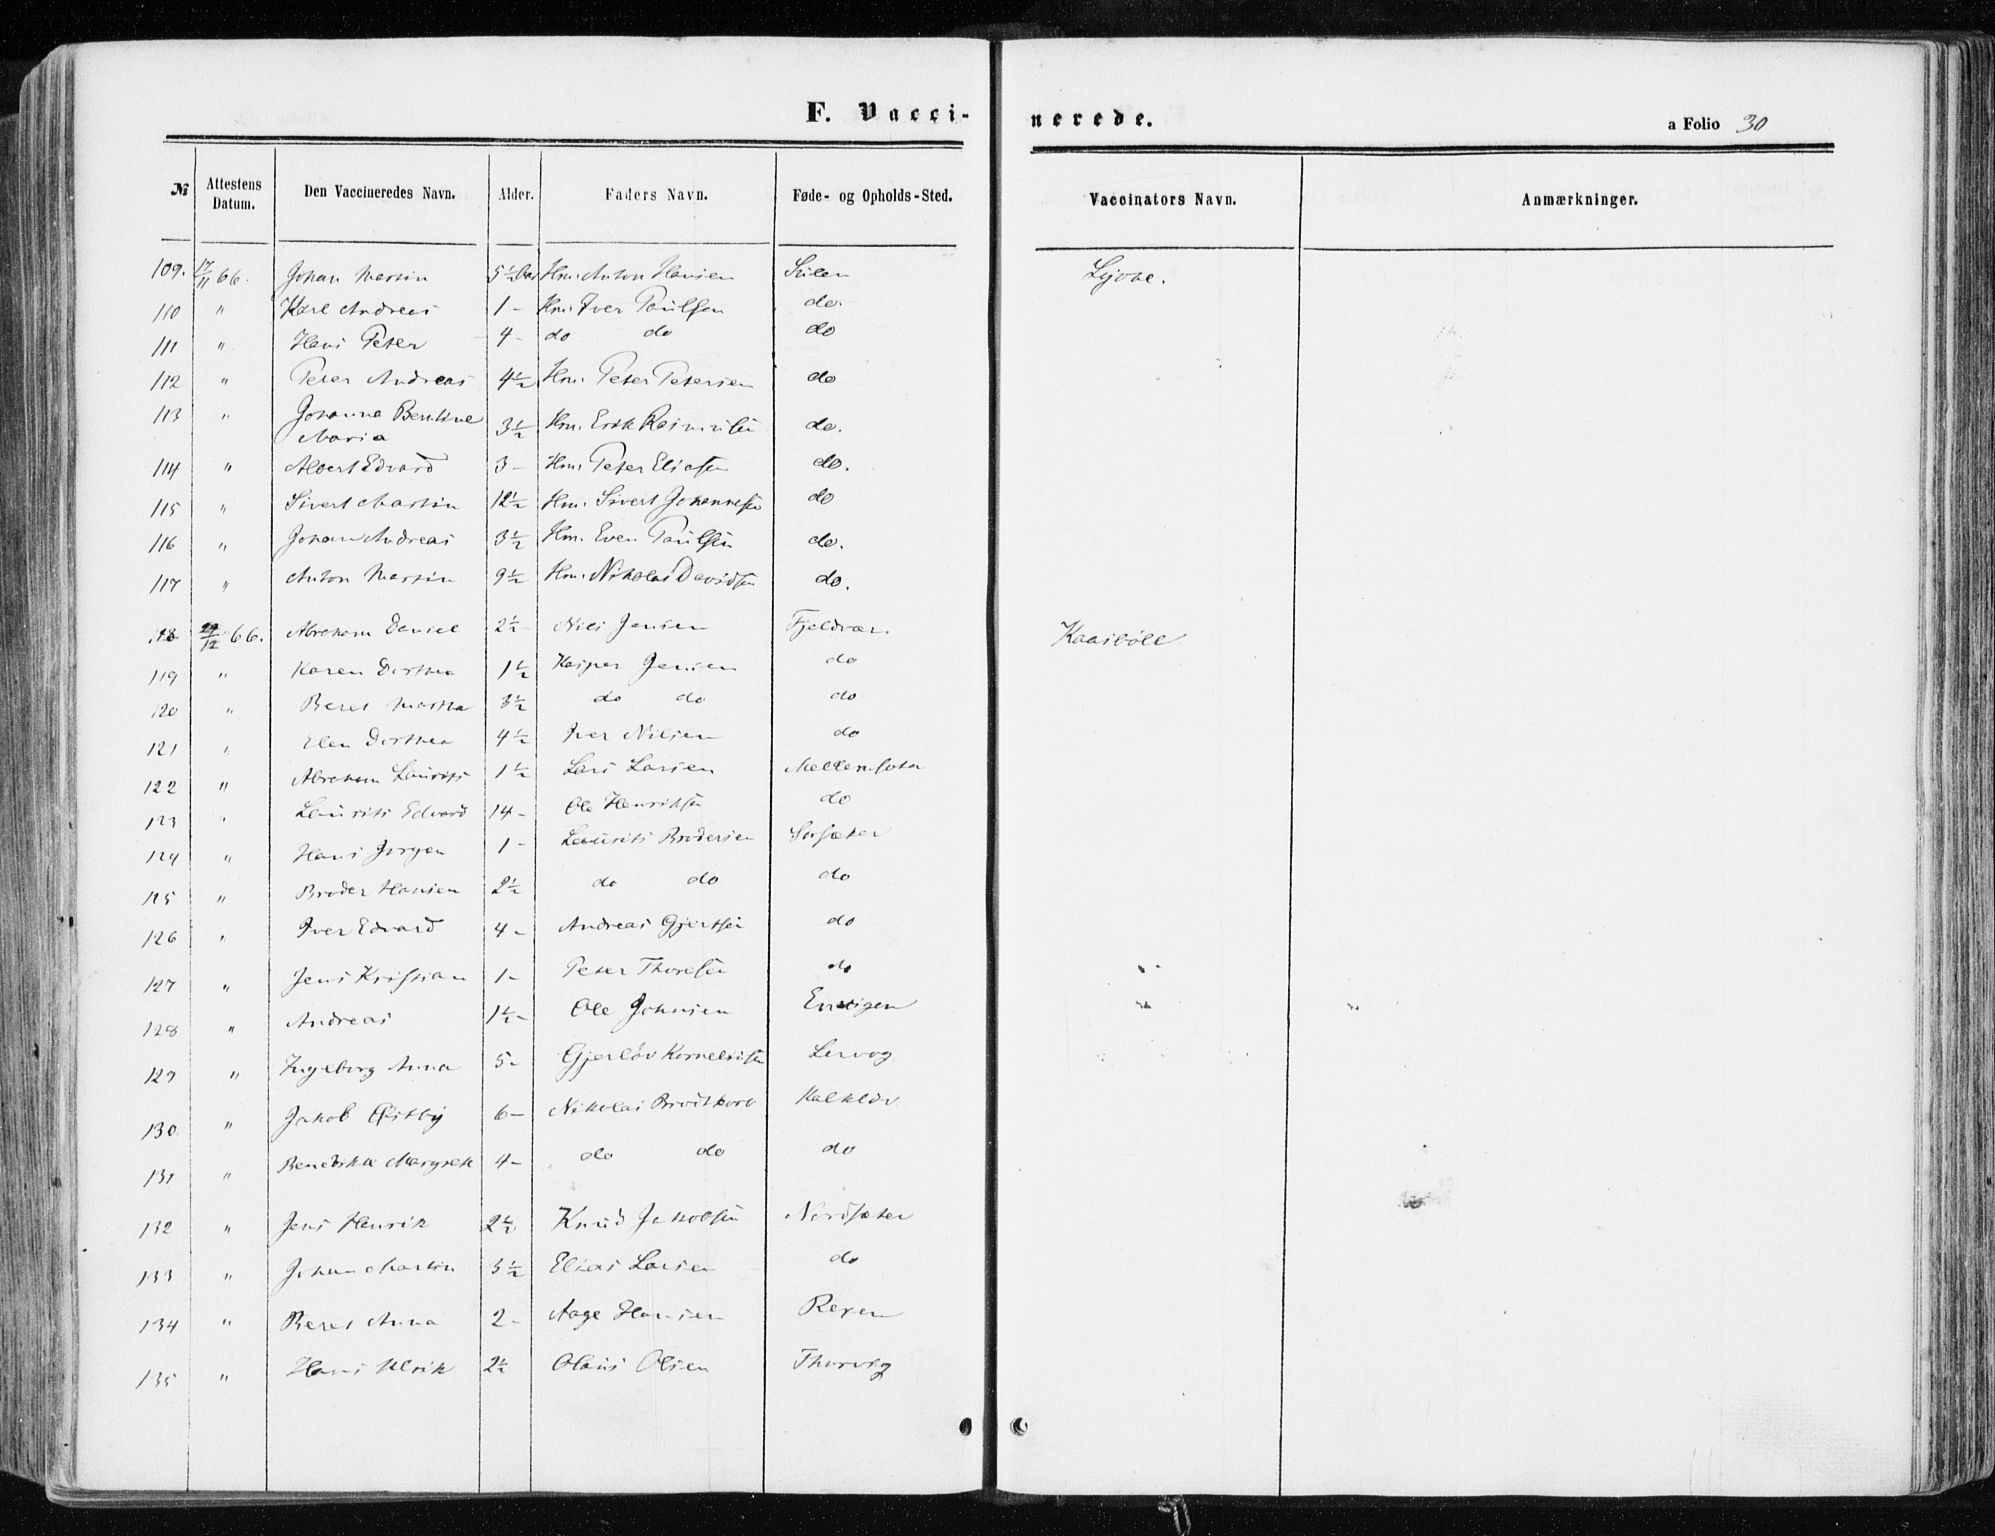 F. Vacci- nerede. a Folio 30
№ Attestens Datum. Den Vaccineredes Navn. Alder. Faders Navn. Føde- og Opholds-Sted. Vaccinators Navn. Anmærkninger.
109. 17/11 66. Johan Martin 5½ Hm. Anton Hansen Sulen
110 " Karl Andreas 1 - Hm. Iver Paulsen do.
111 " Hans Peter 4 - do do do
112 " Peter Andreas 4½ Hm. Peter Petersen do
113 " Johanna Bentine Maria 3½ Hm. Erik do.
114 " Albert Edvard 3 - Hm. Peter Eliasen do.
115 " Sivert Martin 12½ Hm. Sivert Johannesen do
116 " Johan Andreas 3½ Hm. Even Paulsen do.
117 " Anton Martin 9½ Hm. Nikolai Davidsen do.
118 /12 66. Abraham Daniel 2½ - Nils Jensen Fjeldvær Kaasbøll
119 " Karen Dorthea 1½ Kasper Jensen do
120 " Beret Martha 3½ do do do
121 " Elen Dorthea 4½ Iver Nilsen do
122 " Abraham Laurits 1½ Lars Larsen
123 " Laurits Edvard 14 - Ole Henriksen do
124 " Hans Jørgen 1 - Laurits Brodersen Sørsæter
125 " Broder Hansen 2½ do do do
126 " Iver Edvard 4 - Andreas Gjertsen do
127 " Jens Kristian 1 - Peter Thoresen do
128 " Andreas 1½ - Ole Johnsen
129 " Ingeborg Anna 5 - Gjerløv Korneliusen Lervog
130 " Jakob Østby 6 - Nikolai Brodtkorb Kalkløv
131 " Benedikte Margrete 4 - do do do
132 " Jens Henrik 2½ Knud Jakobsen Nordsæter
133 " Johan Martin 3½ Elias Larsen do
134 " Beret Anna 2 - Aage Hansen Rexen
135 " Hans Ulrik 2½ Olaus Olsen Thorvig